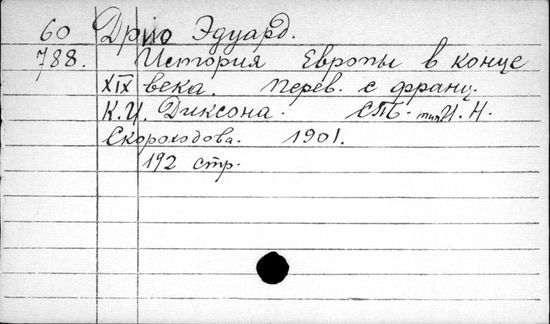 60 Дрио Эдуард.
788. История Европы в конце
XIX века. Перев. с франц.
К.И. Диксона. СПБ. тип. И. Н.
Скороходова. 1901.
192 стр.